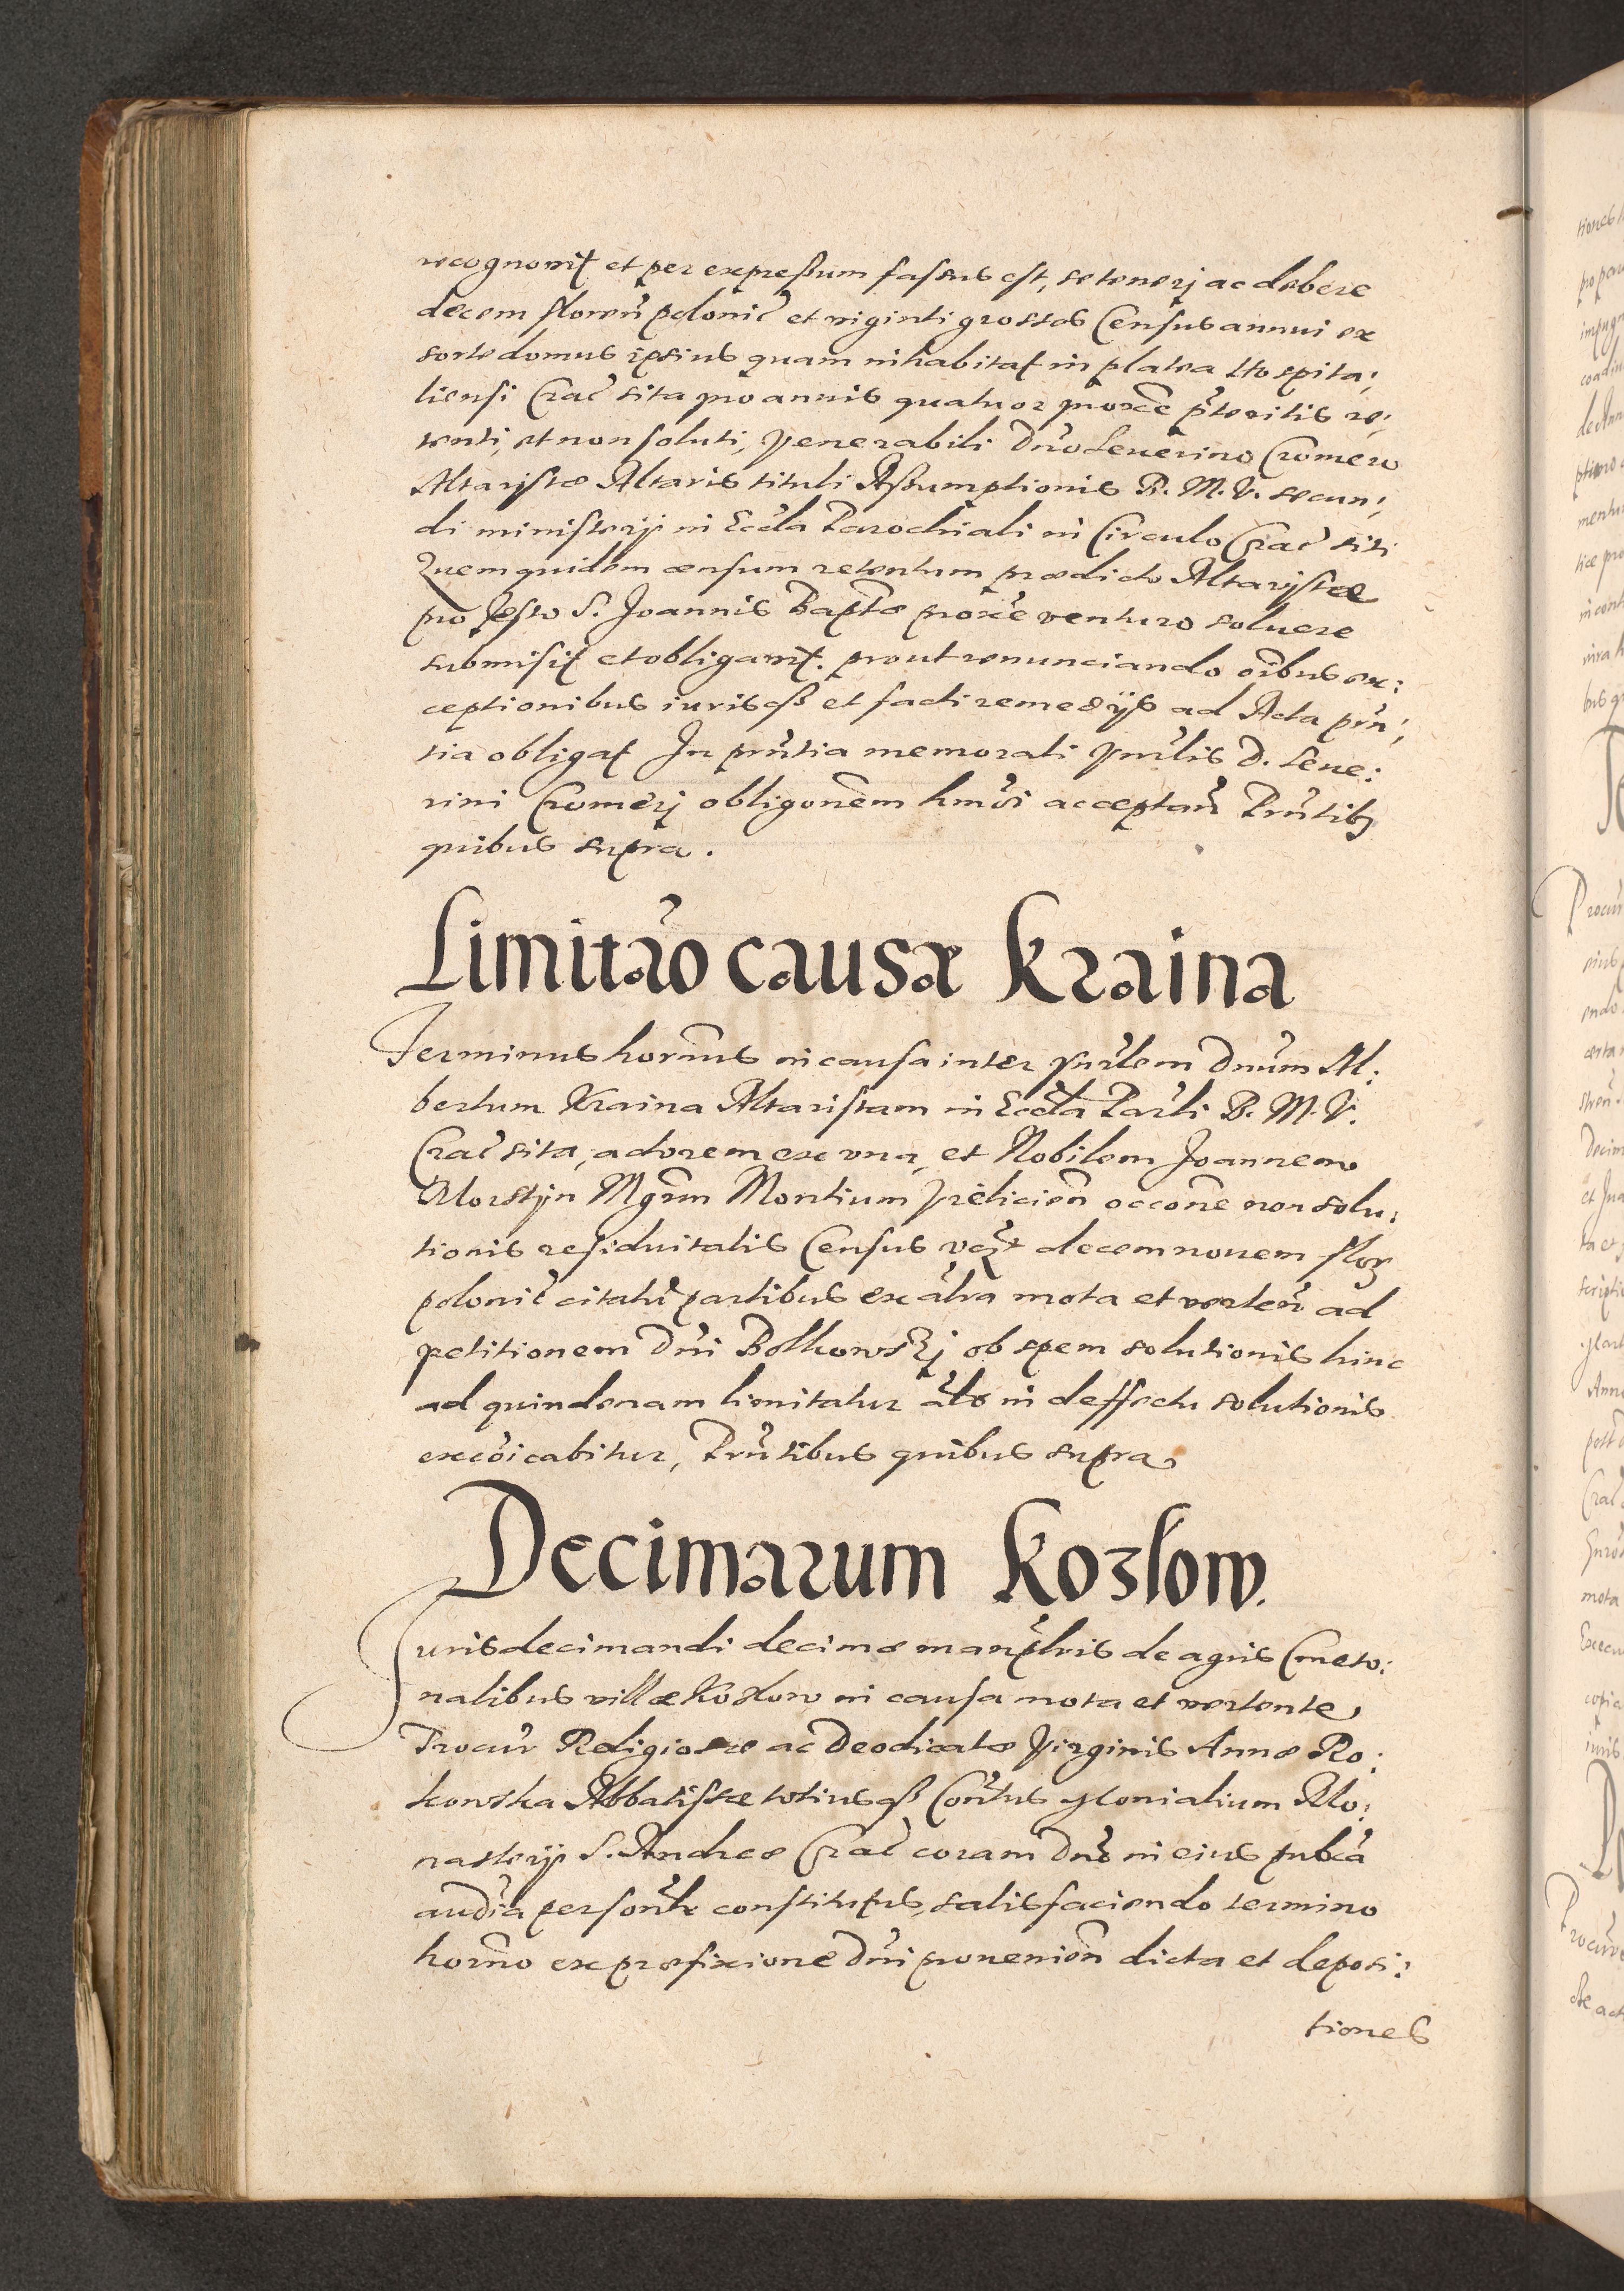 recognovit et per expreßum fassus est, se tenerj ac debere
decem floreñ polonic̃ et viginti grossos Census annui ex
sorte domus ipsius quam inhabitat in platea Hospita:
liensi Crac̃ sita pro annis quatuor proxẽ pr̃teritis re:
tenti, et non soluti, Venerabili Dño Seuerino Cromero
Altaristæ Altaris tituli Aßumptionis B. M. V. secun:
di ministerij in Eccl̃a Parochiali in Circulo Crac̃ siti
Quem quidem censum retentum prædicto Altaristæ
pro festo S. Joannis Baptæ̃ proxẽ venturo soluere
submisit et obligavit. prout renunciando oĩbus ex:
ceptionibus iurisqß et facti remedijs ad Acta prñ:
tia obligat In prñtia memorati Vnrl̃is D. Seue:
rini Cromerj obligonẽm hmõi acceptañ Prñtibɜ
quibus supra.
Limitaõ causæ Kraina
Terminus hornũs in causa inter Vnrl̃em Dnũm Al:
bertum Kraina Altaristam in Eccl̃a Parl̃i B. M. V.
Crac̃ sita, actorem ex vna, et Nobilem Joannem
Morstyn Mgrm̃ Montium Vielicieñ occonẽ non solu:
tionis residuitatis Census vcz̃t decem nouem floɀ
polonic̃ citatũ partibus ex altr̃a mota et verteñ ad
petitionem Dñi Bolkowskj ob spem solutionis hinc
ad quindenam limitatur al̃s in deffectu solutionis
excõicabitur, Prñtibus quibus supra
Decimarum Kozlow.
Juris decimandi decimæ manipl̃ris de agris Cmeto:
nalibus villæ Kozlow in causa mota et vertente
Procur̃ Religiosæ ac Deodicatæ Virginis Annæ Ro:
kowska Abbatissæ totiusqß Conṽtus Monialium Mo:
nasterij S. Andreæ Crac̃ coram Dño in eius publc̃a
audiã personl̃r constitutus, satisfaciendo termino
horño ex præfixione Dñi proueniеñ dicta et deposi:
tiones